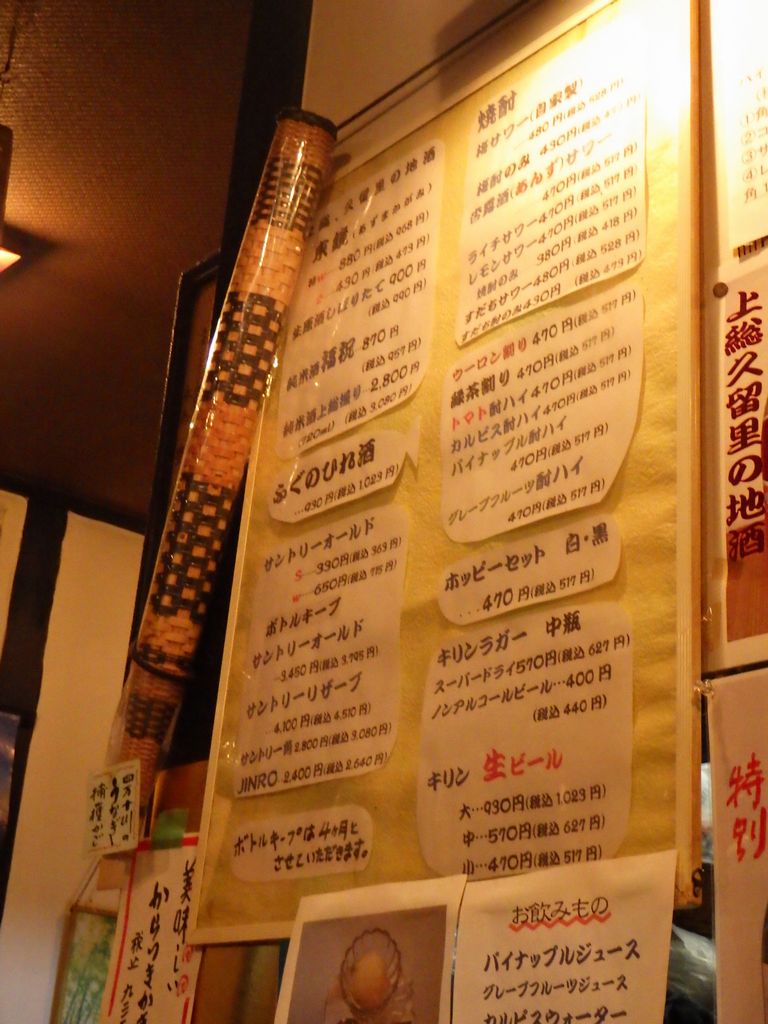 焼酎
梅サワー(自家製)
480円(税込528円)
梅酎のみ 430円(税込473円)
杏露酒(あんず)サワー
470円(税込517円)
ライチサワー470円(税込517円)
レモンサワー470円(税込517円)
焼酎のみ 380円(税込418円)
すだちサワー480円(税込528円)
すだち酎のみ430円(税込473円)
ウーロン割り 470円(税込517円)
緑茶割り 470円(税込517円)
トマト酎ハイ470円(税込517円)
カルピス酎ハイ470円(税込517円)
パイナップル酎ハイ
470円(税込517円)
グレープフルーツ酎ハイ
470円(税込517円)
ホッピーセット 白・黒
...470円(税込517円)
キリンラガー 中瓶
スーパードライ570円(税込627円)
ノンアルコールビール…400円
(税込440円)
キリン 生ビール
大…930円(税込1,023円)
中…570円(税込627円)
小…470円(税込517円)
久留里の地酒
東鏡(あずまかがみ)
880円(税込968円)
430円(税込473円)
生原酒しぼりたて 900円
(税込990円)
純米酒福祝 870円
(税込957円)
純米酒上総掘り…2,800円
(720ml) (税込3,080円)
ふぐのひれ酒
…930円(税込1,023円)
サントリーオールド
S…330円(税込363円)
W…650円(税込715円)
ボトルキープ
サントリーオールド
…3,450円(税込3,795円)
サントリーリザーブ
…4,100円(税込4,510円)
サントリー角2,800円(税込3,080円)
JINRO…2,400円(税込2,640円)
ボトルキープは4ヶ月と
させていただきます。
お飲みもの
パイナップルジュース
グレープフルーツジュース
カルピスウォーター
上総久留里の地酒
特別
四万十川の
うなぎ
捕獲かご
美味しい